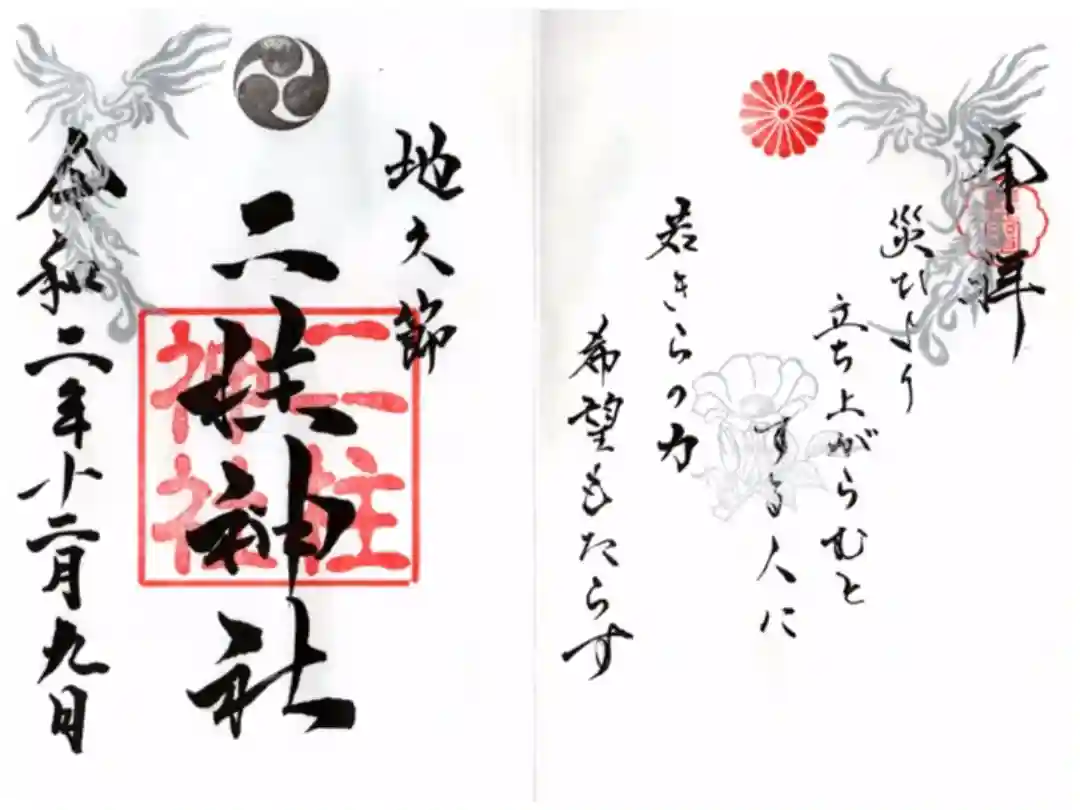 奉拝
災ひより
立ち上がらむと
する人に
若きらの力
希望もたらす
地久節
二柱神社
二柱
神社
令和二年十二月九日